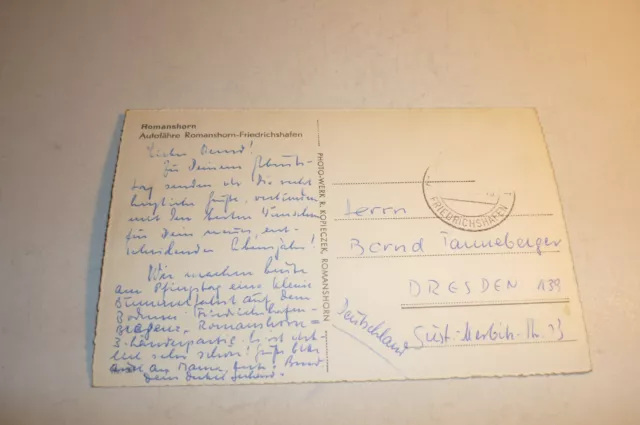 Romanshorn
Autofähre Romanshorn-Friedrichshafen
Lieber Bernd!
Zu Deinem Geburts-
tag senden wir Dir recht
herzliche Grüße, verbunden
mit den besten Wünschen
für Dein neues, ent-
scheidendes Lebensjahr!
Wir machen heute
am Pfingsttag eine kleine
Bummelfahrt auf dem
Bodensee: Friedrichshafen-
Bregenz, Romanshorn =
3-Länderpartie. Es ist
sehr schön! Grüße bitte
an Mama,
Dein Onkel
PHOTO-WERK R. KOPIECZEK, ROMANSHORN
FRIEDRICHSHAFEN
Herrn
Bernd Tanneberger
DRESDEN A39
Gust.-Merbitz-Str. 23
Deutschland